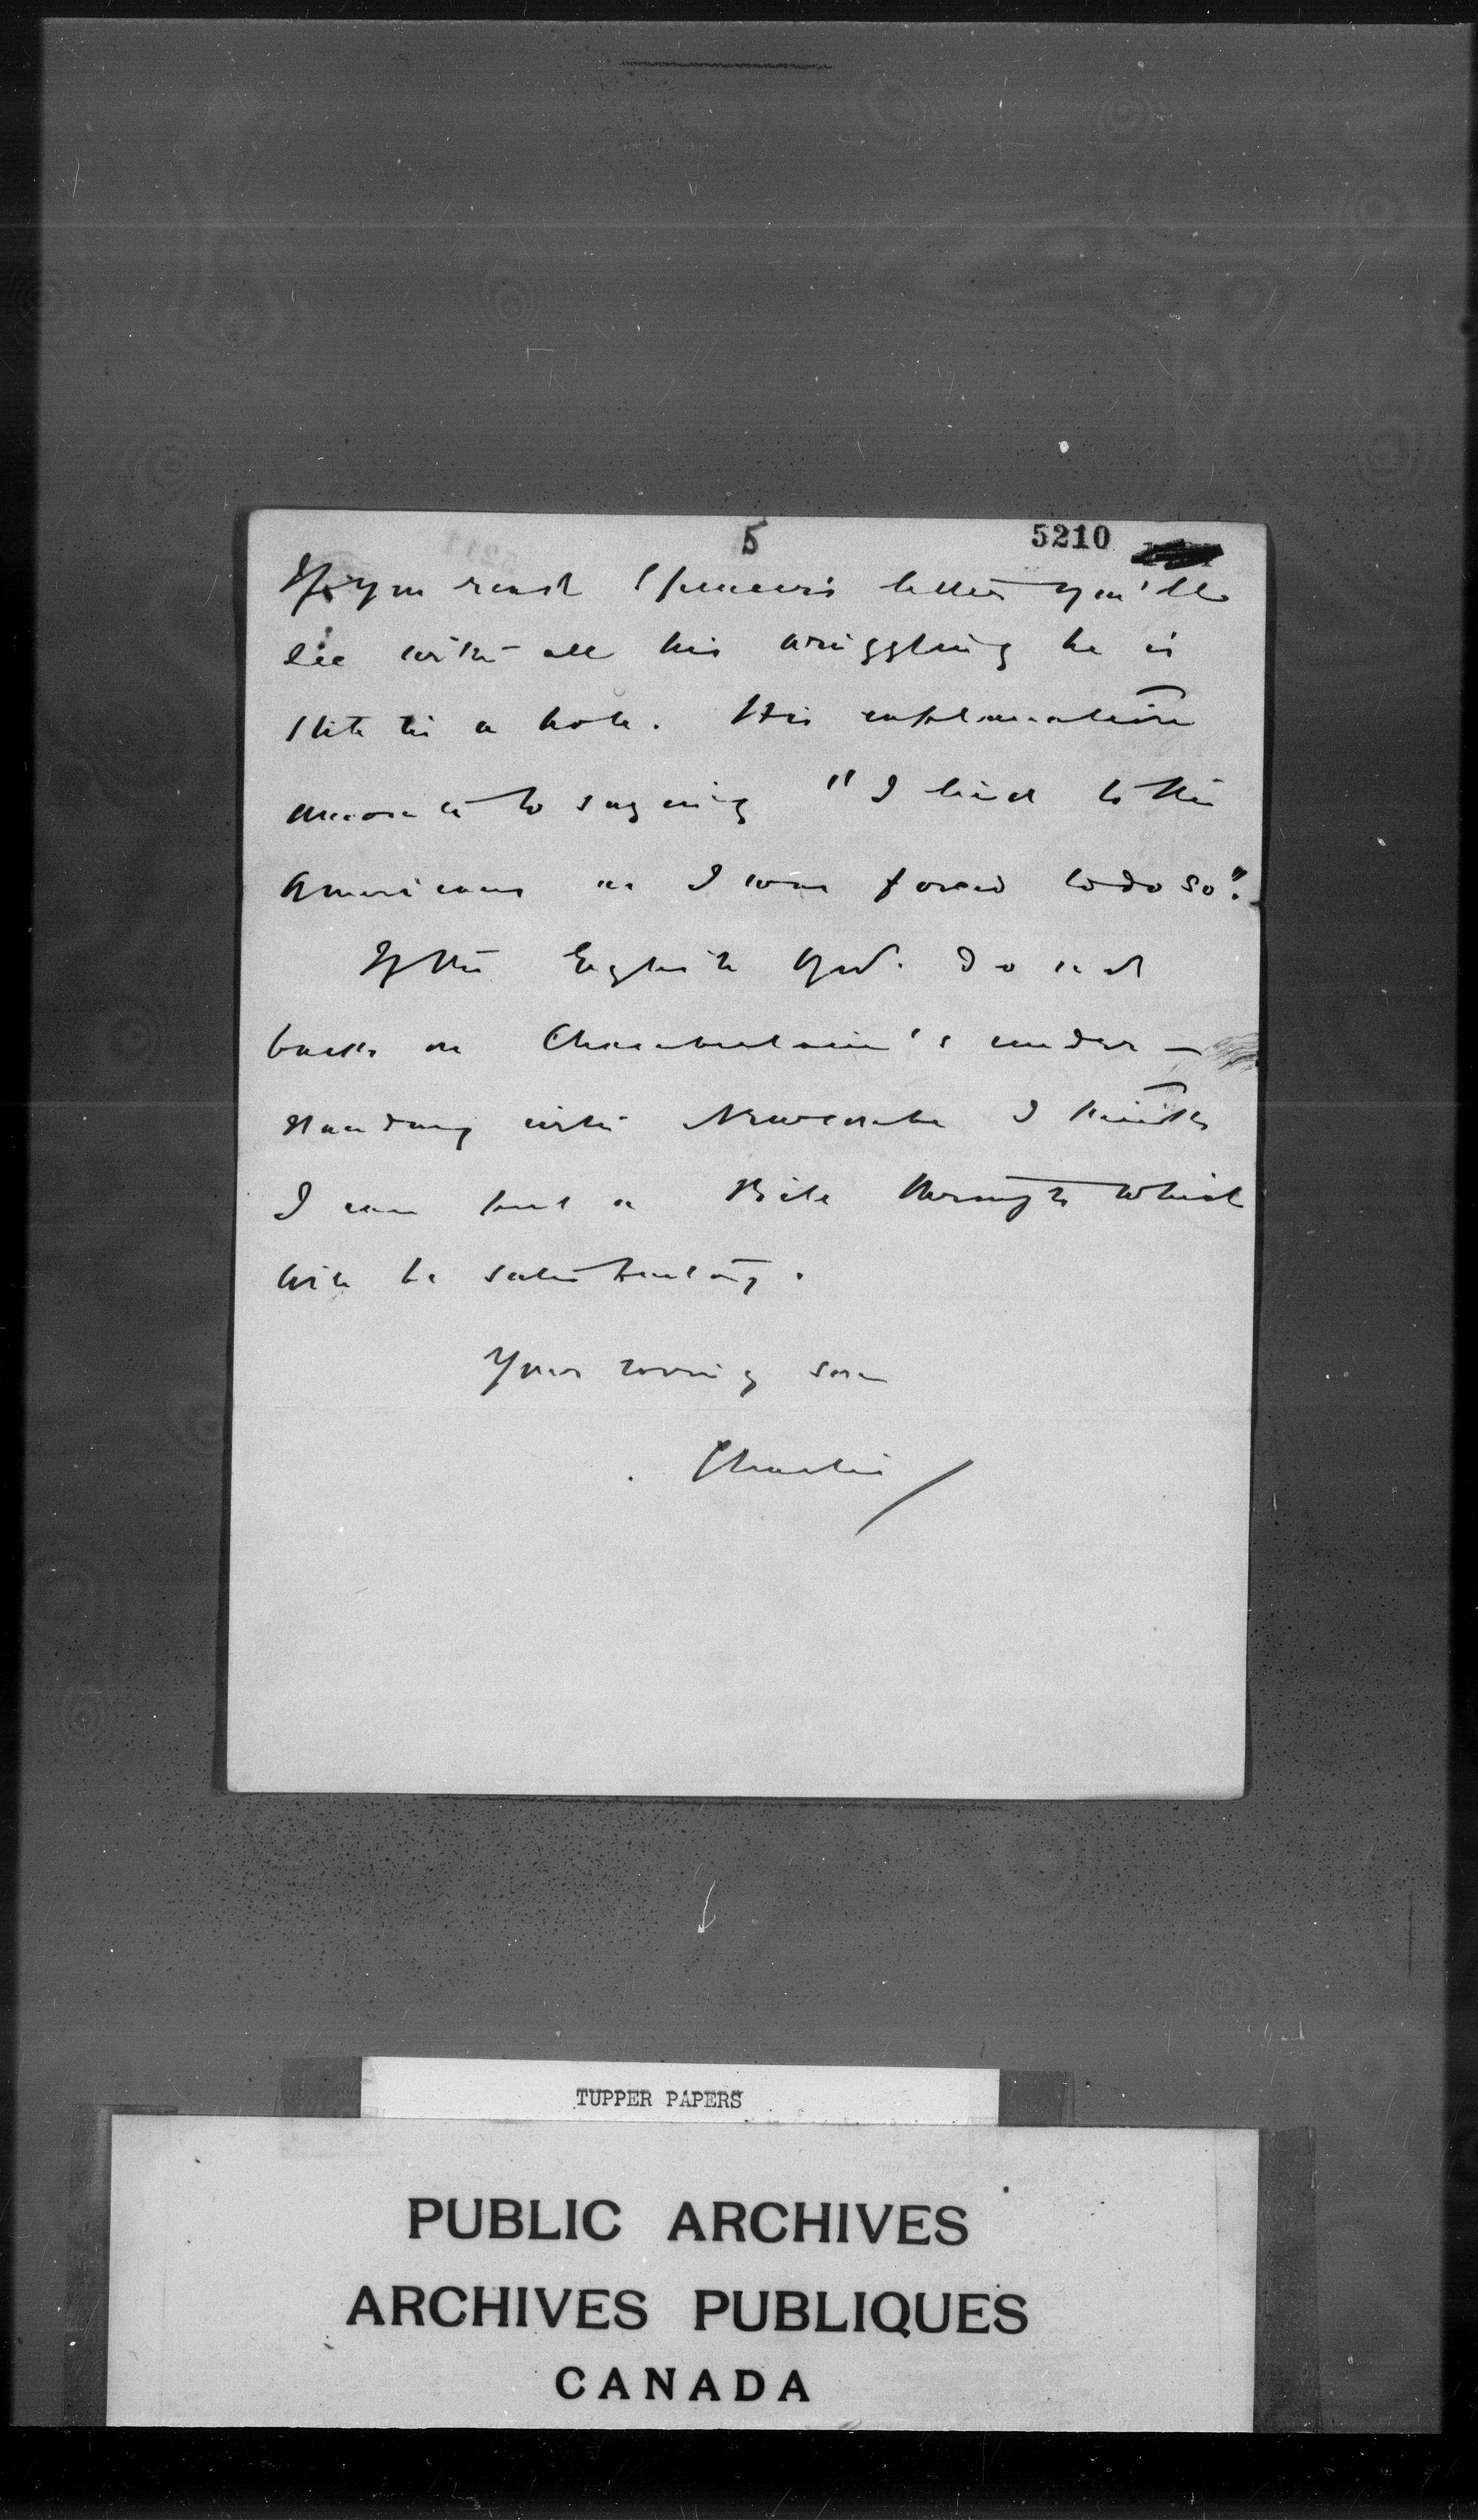 5
5210
If you read Spencer's letter you'll
see with all his wriggling he is
still in a hole. His explanation
amounts to saying "I lied to the
Americans as I was forced to do so".
If the English Gov. do not
back on Chamberlain's under-
standing with Newcombe I think
I can put a Bill through which
will be satisfactory.
Your loving son
Charlie
TUPPER PAPERS
PUBLIC ARCHIVES
ARCHIVES PUBLIQUES
CANADA